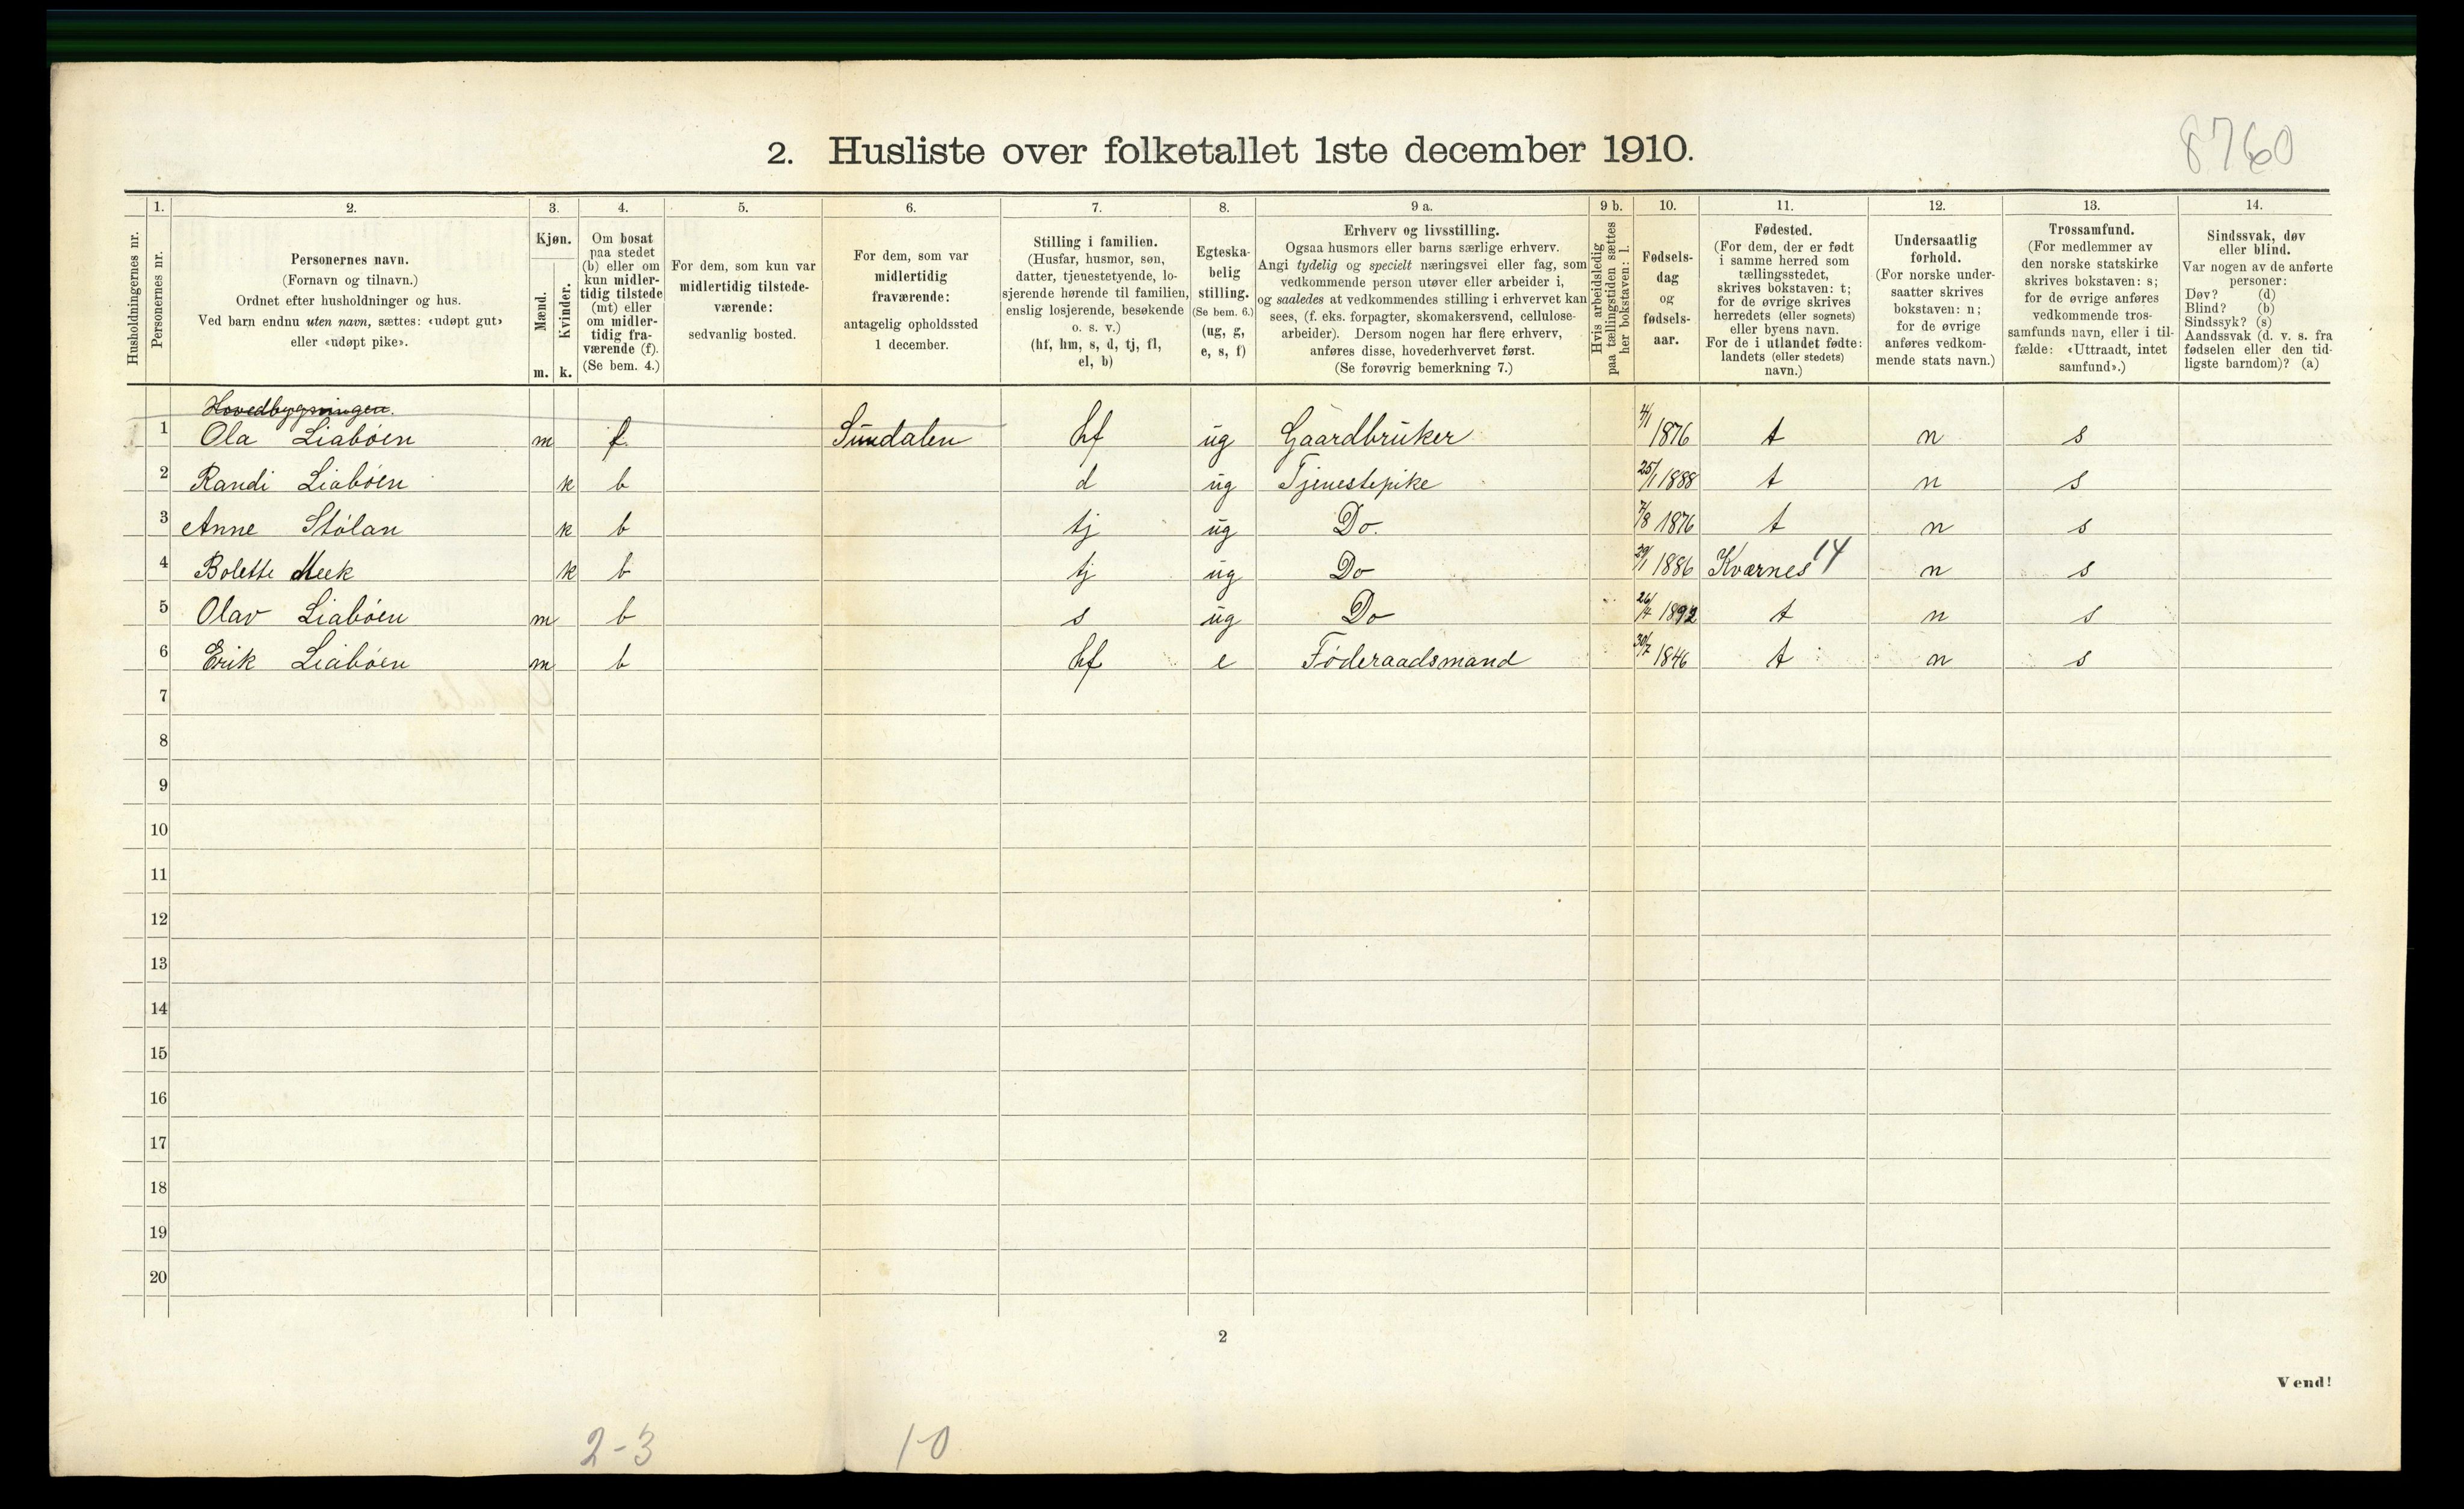 2. Husliste over folketallet 1ste december 1910.
8760
Husholdningernes nr.
1.
Personernes nr.
2.
Personernes navn.
(Fornavn og tilnavn.)
Ordnet efter husholdninger og hus.
Ved barn endnu uten navn, sættes: «udøpt gut»
eller «udøpt pike».
3.
Kjøn.
Mænd.
Kvinder.
m. k.
4.
Om bosat
paa stedet
(b) eller om
kun midler-
tidig tilstede
(mt) eller
om midler-
tidig fra-
værende (f).
(Se bem. 4.)
5.
For dem, som kun var
midlertidig tilstede-
værende:
sedvanlig bosted.
6.
For dem, som var
midlertidig
fraværende:
antagelig opholdssted
1 december.
7.
Stilling i familien.
(Husfar, husmor, søn,
datter, tjenestetyende, lo-
sjerende hørende til familien,
enslig losjerende, besøkende
o. s. v.)
(hf, hm, s, d, tj, fl,
el, b)
8.
Egteska-
belig
stilling.
(Se bem. 6.)
(ug, g,
e, s, f)
9 a.
Erhverv og livsstilling.
Ogsaa husmors eller barns særlige erhverv.
Angi tydelig og specielt næringsvei eller fag, som
vedkommende person utøver eller arbeider i,
og saaledes at vedkommendes stilling i erhvervet kan
sees, (f. eks. forpagter, skomakersvend, cellulose-
arbeider). Dersom nogen har flere erhverv,
anføres disse, hovederhvervet først.
(Se forøvrig bemerkning 7.)
9 b.
Hvis arbeidsledig
paa tællingstiden sættes
her bokstaven: l.
10.
Fødsels-
dag
og
fødsels-
aar.
11.
Fødested.
(For dem, der er født
i samme herred som
tællingsstedet,
skrives bokstaven: t;
for de øvrige skrives
herredets (eller sognets)
eller byens navn.
For de i utlandet fødte:
landets (eller stedets)
navn.)
12.
Undersaatlig
forhold.
(For norske under-
saatter skrives
bokstaven: n;
for de øvrige
anføres vedkom-
mende stats navn.)
13.
Trossamfund.
(For medlemmer av
den norske statskirke
skrives bokstaven: s;
for de øvrige anføres
vedkommende tros-
samfunds navn, eller i til-
fælde: «Uttraadt, intet
samfund».)
14.
Sindssvak, døv
eller blind.
Var nogen av de anførte
personer:
Døv? (d)
Blind? (b)
Sindssyk? (s)
Aandssvak (d. v. s. fra
fødselen eller den tid-
ligste barndom)? (a)
Hovedbygningen.
1 Ola Liabøen m f. Sundalen hf ug Gaardbruker 4/1 1876 t n s
2 Randi Liabøen k b d ug Tjenestepike 25/1 1888 t n s
3 Anne Stølan k b tj ug Do. 7/8 1876 t n s
4 Bolette Meek k b tj ug Do 29/1 1886 Kværnes 14 n s
5 Olav Liabøen m b s ug Do 26/4 1892 t n s
6 Erik Liabøen m b hf e Føderaadsmand 30/7 1846 t n s
7
8
9
10
11
12
13
14
15
16
17
18
19
20
2
Vend!
2-3 10